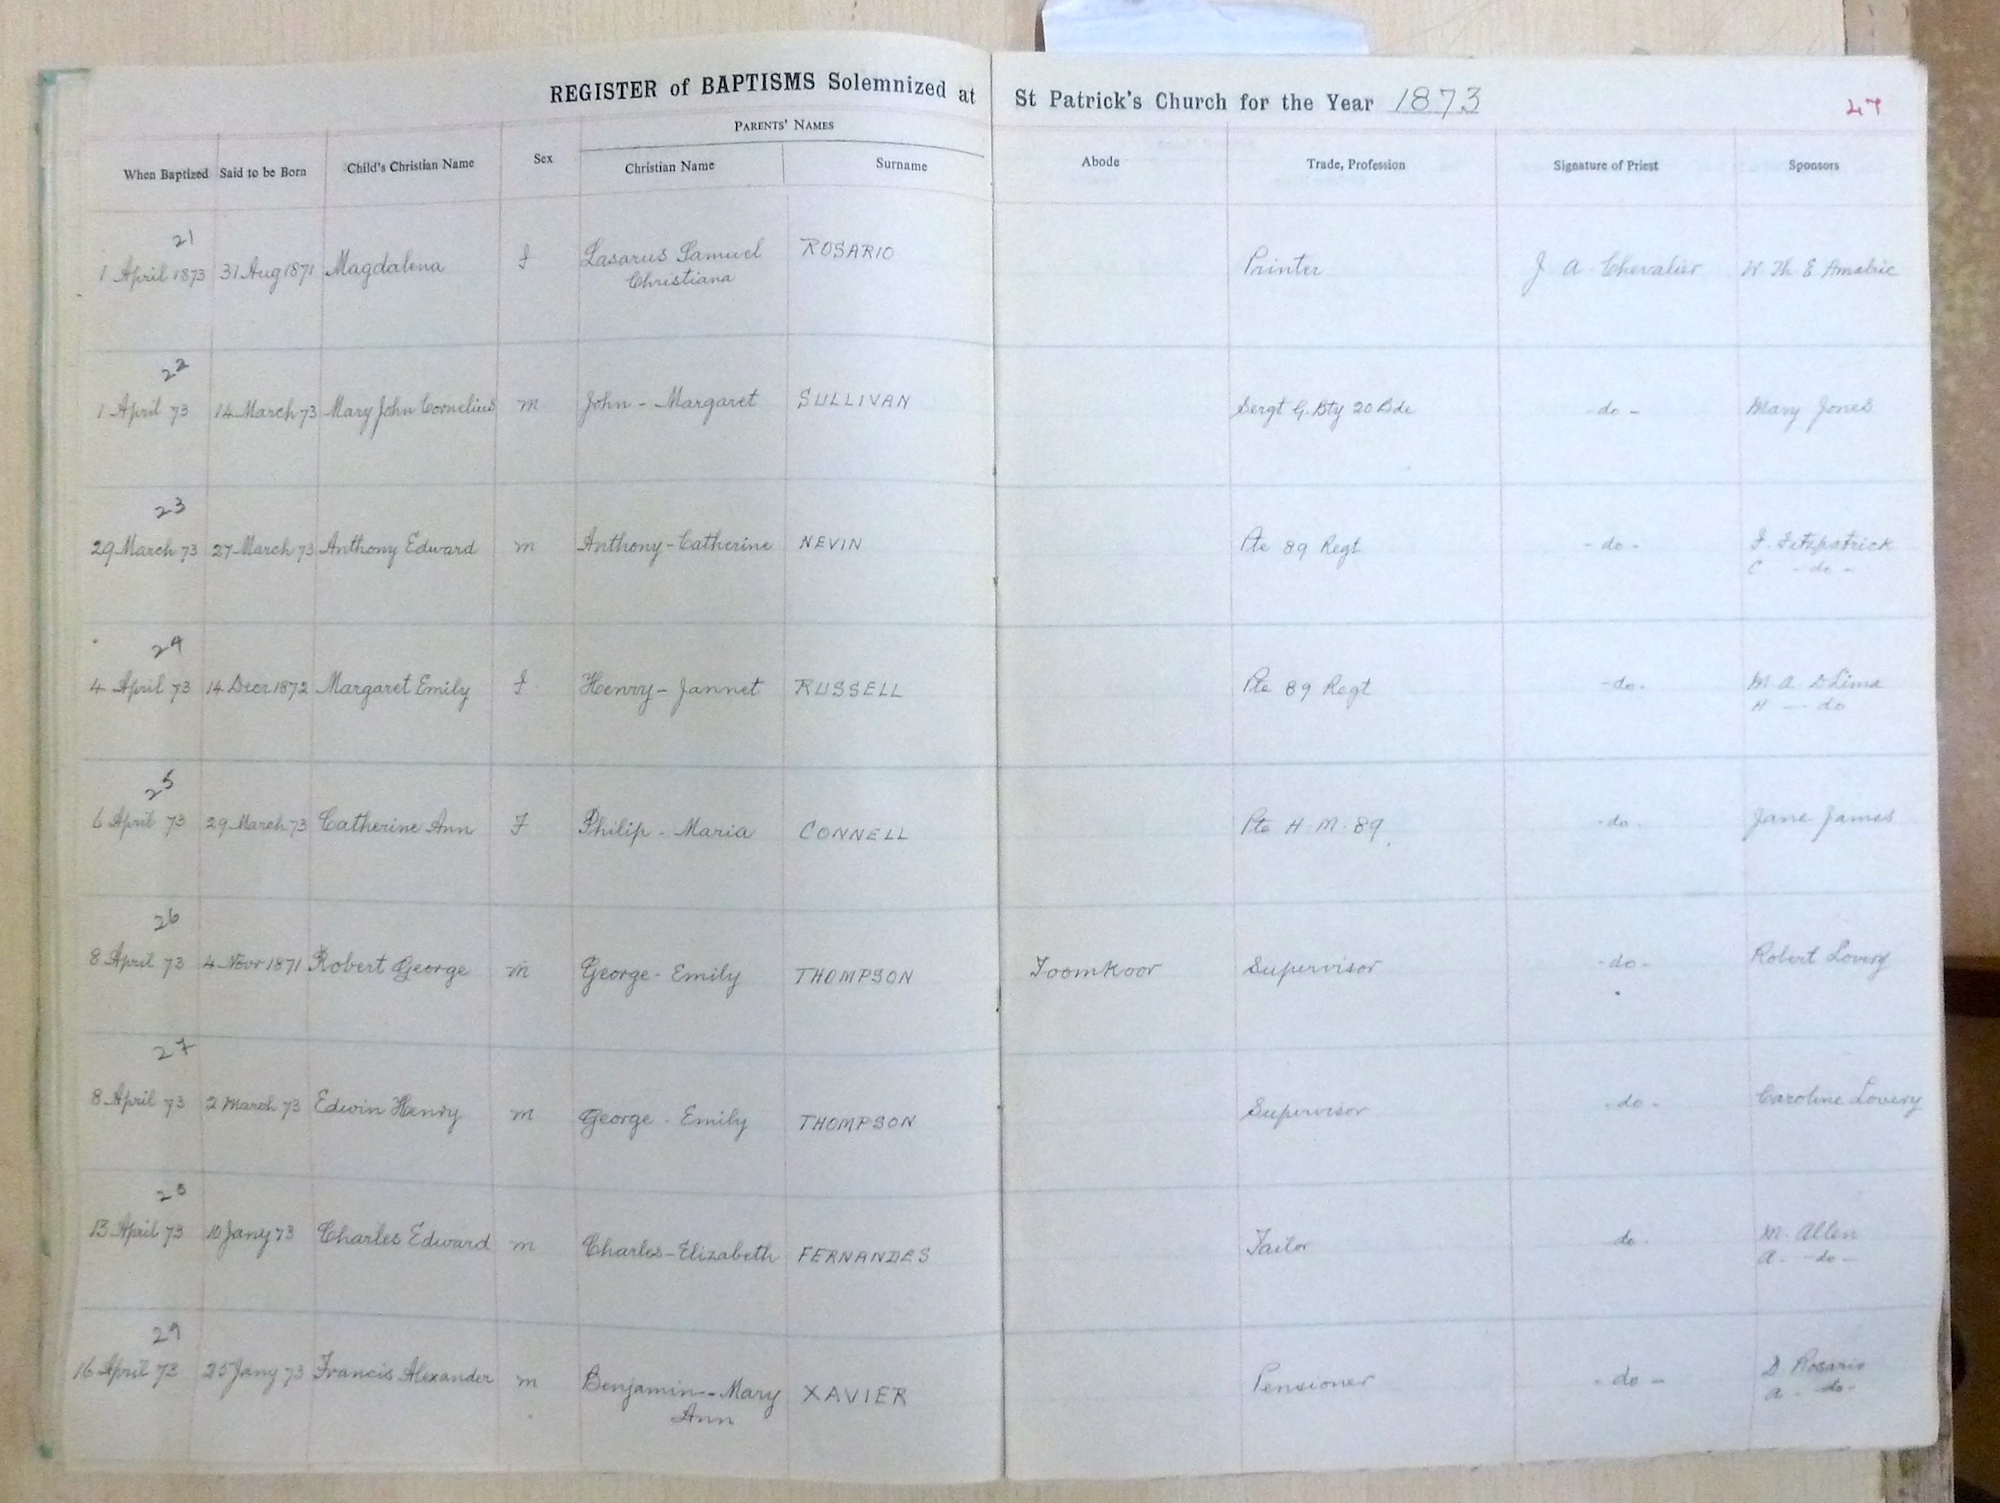 REGISTER of BAPTISMS Solemnized at St Patrick's Church for the Year 1873
27
PARENTS' NAMES
When Baptized Said to be Born Child's Christian Name Sex Christian Name Surname Abode Trade, Profession Signature of Priest Sponsors
21
1 April 1873 31 Aug 1871 Magdalena f Lasarus Samuel ROSARIO Printer J A Chevalier W Th E Amalric
Christiana
22
1 April 73 14 March 73 Mary John Cornelius m John - Margaret SULLIVAN Sergt G. Bty 20 Bde - do - Mary Jones
23
29 March 73 27 March 73 Anthony Edward m Anthony - Catherine NEVIN Pte 89 Regt - do - F. Fitzpatrick
C - do -
24
4 April 73 14 Decr 1872 Margaret Emily f Henry - Jannet RUSSELL Pte 89 Regt - do - M A D Lima
H - do
25
6 April 73 29 March 73 Catherine Ann F Philip - Maria CONNELL Pte H. M. 89 - do - Jane James
26
8 April 73 4 Novr 1871 Robert George m George - Emily THOMPSON Toomkoor Supervisor - do - Robert Lovery
27
8 April 73 2 March 73 Edwin Henry m George - Emily THOMPSON Supervisor - do - Caroline Lovery
28
13 April 73 10 Jany 73 Charles Edward m Charles - Elizabeth FERNANDES Tailor do M. Allen
A. - do -
29
16 April 73 25 Jany 73 Francis Alexander m Benjamin - Mary XAVIER Pensioner - do - D Rosario
Ann A - do -